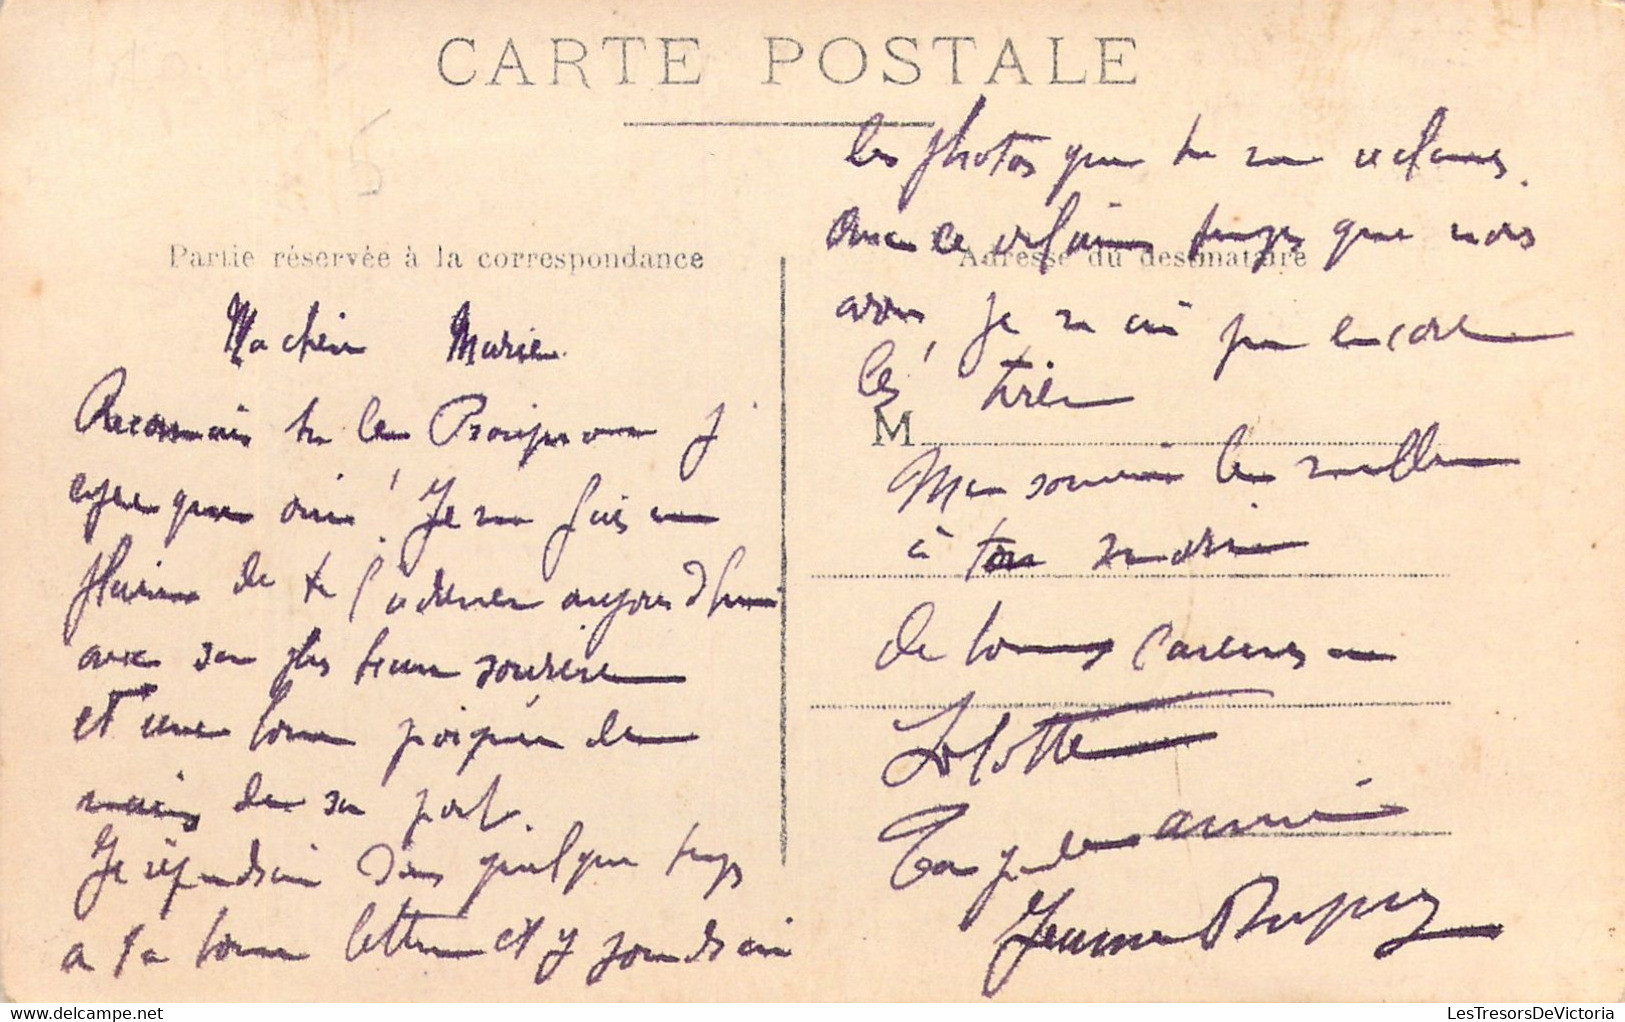 CARTE POSTALE
Partie réservée à la correspondance
Ma chère Marie
Reconnais tu le j
espère que oui! Je me fais un
plaisir de te l'adresser aujourd'hui
avec son plus beau sourire
et une bonne poignée de
mains de sa part.
Je répondrai dans quelque temps
a ta bonne lettre et y joindrai
les photos que tu me réclames.
Avec ce vilain temps que nous
avons, je n'ai pas encore
Adresse du destinataire
les tirer
M
Mes souvenirs les meilleurs
à ton
de bonnes caresses
Lolotte
Ta amie
Jeanne Dupuy
LesTresorsDeVictoria